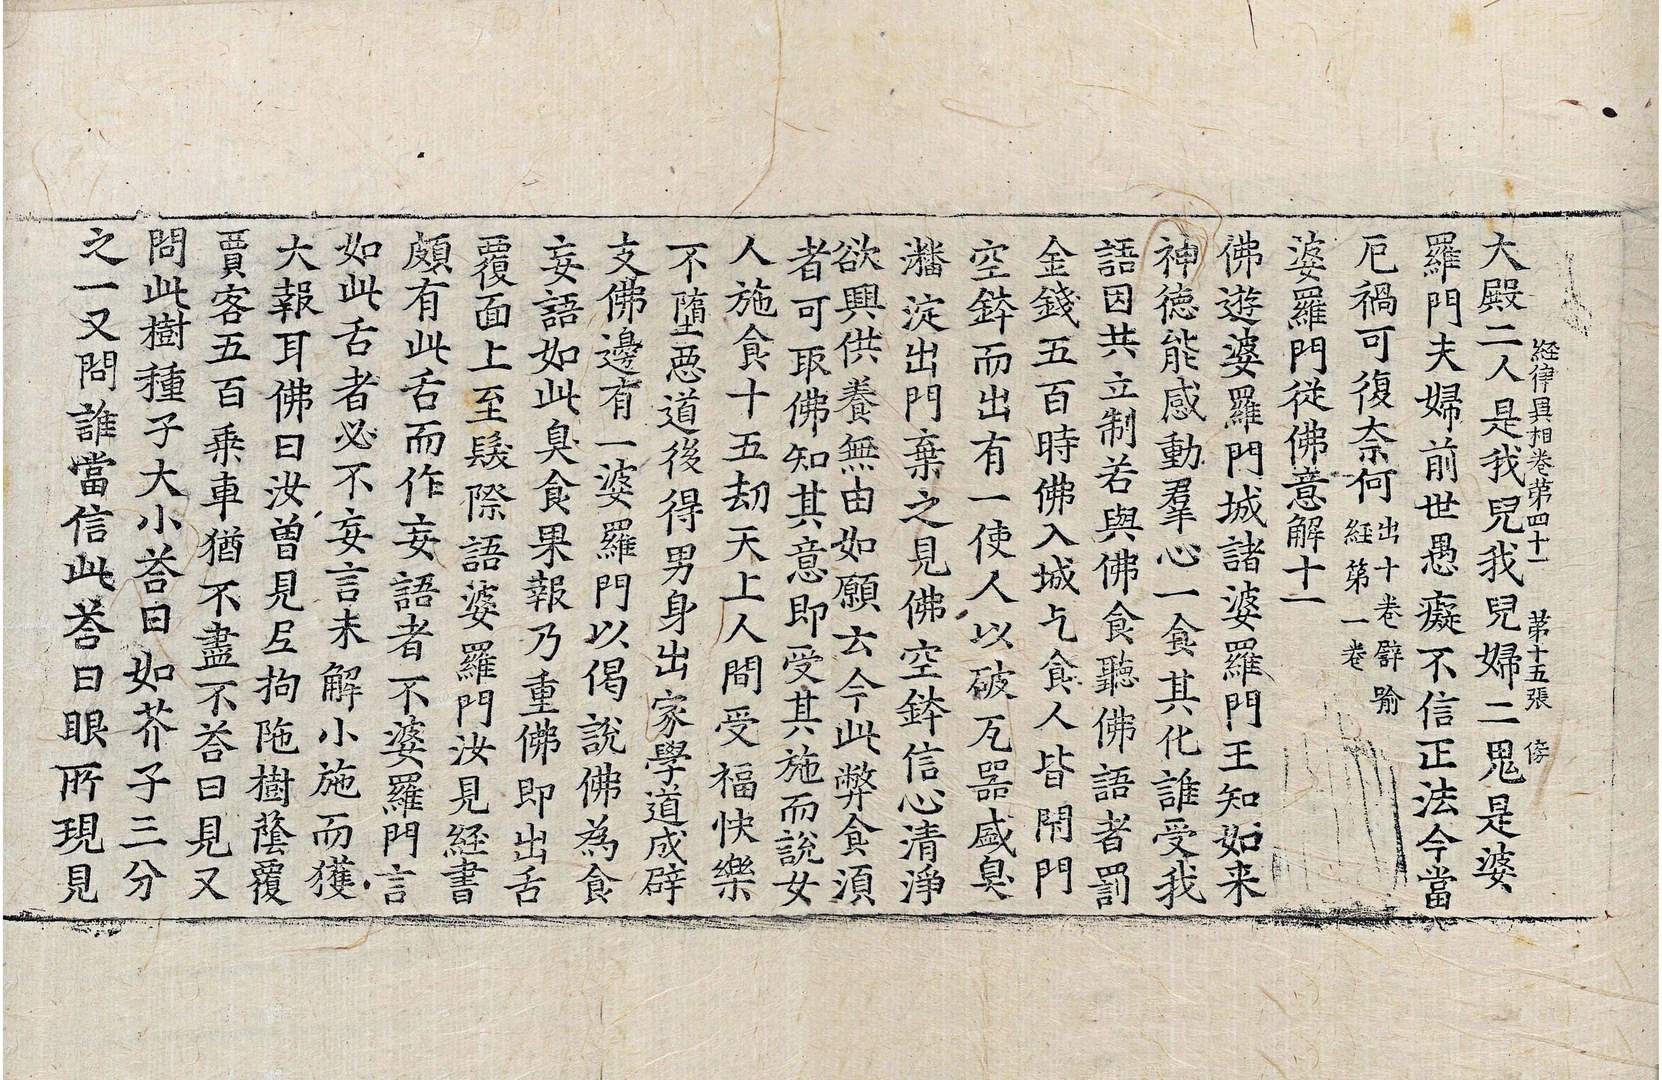 経律異相卷第四十一 第十五張 傍
大殿二人是我兒我兒婦二鬼是婆
羅門夫婦前世愚癡不信正法今當
厄禍可復奈何出十卷譬喻
経第一卷
婆羅門從佛意解十一
佛遊婆羅門城諸婆羅門王知如来
神德能感動羣心一食其化誰受我
語因共立制若與佛食聽佛語者罰
金錢五百時佛入城乞食人皆閇門
空鉢而出有一使人以破瓦器盛臭
瀋淀出門棄之見佛空鉢信心清淨
欲興供養無由如願云今此弊食湏
者可取佛知其意即受其施而說女
人施食十五劫天上人間受福快樂
不墮惡道後得男身出家學道成辟
支佛邊有一婆羅門以偈說佛為食
妄語如此臭食果報乃重佛即出舌
覆面上至髮際語婆羅門汝見経書
頗有此舌而作妄語者不婆羅門言
如此舌者必不妄言未解小施而獲
大報耳佛曰汝曽見尼拘陁樹蔭覆
賈客五百乘車猶不盡不荅曰見又
問此樹種子大小荅曰如芥子三分
之一又問誰當信此荅曰眼所現見